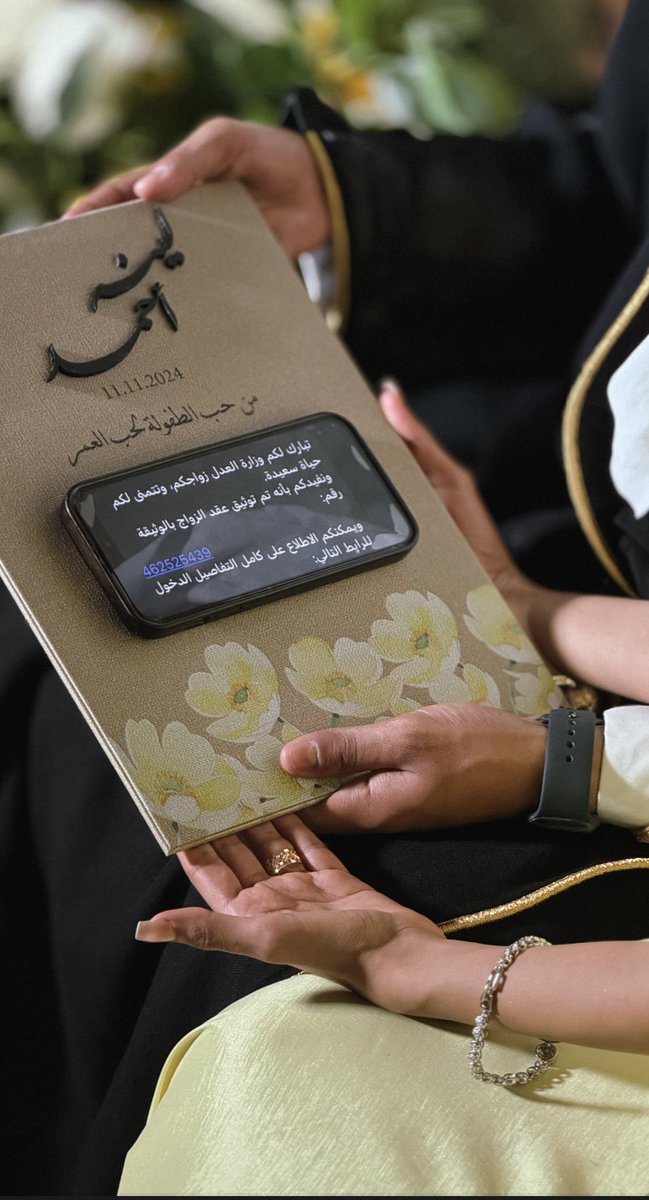 لينه
أحمد
11.11.2024
من حب الطفولة لحب العمر
تبارك لكم وزارة العدل زواجكم، وتتمنى لكم
حياة سعيدة.
ونفيدكم بأنه تم توثيق عقد الزواج بالوثيقة
رقم:
462525439
ويمكنكم الاطلاع على كامل التفاصيل الدخول
للرابط التالي: